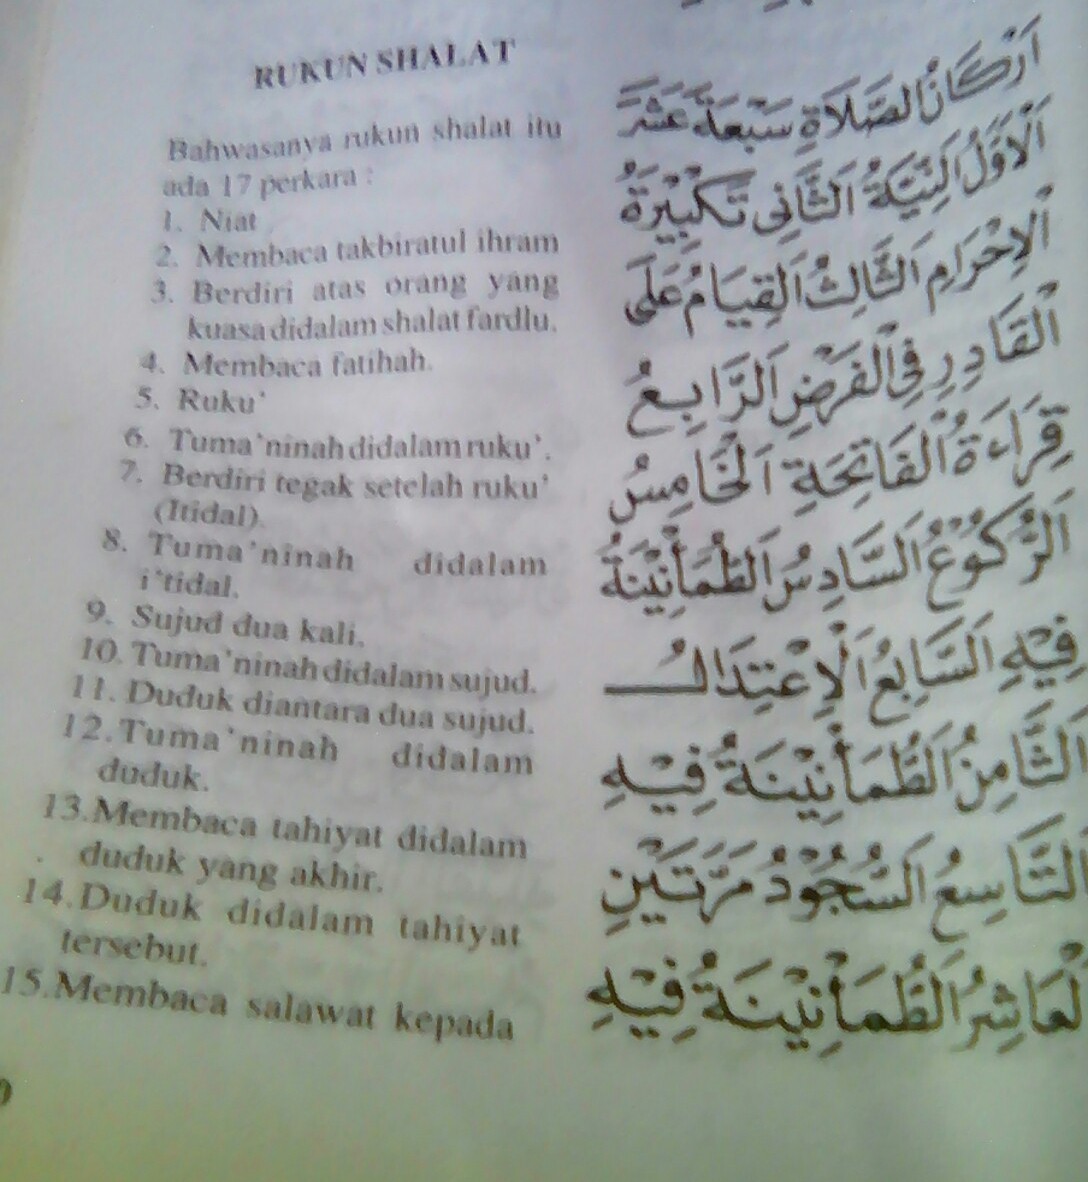 RUKUN SHALAT
Bahwasanya rukun shalat itu
ada 17 perkara :
1. Niat
2. Membaca takbiratul ihram
3. Berdiri atas orang yang
kuasa didalam shalat fardlu.
4. Membaca fatihah.
5. Ruku'
6. Tuma'ninah didalam ruku'.
7. Berdiri tegak setelah ruku'
(Itidal).
8. Tuma'ninah didalam
i'tidal.
9. Sujud dua kali.
10. Tuma'ninah didalam sujud.
11. Duduk diantara dua sujud.
12. Tuma'ninah didalam
duduk.
13. Membaca tahiyat didalam
duduk yang akhir.
14. Duduk didalam tahiyat
tersebut.
15. Membaca salawat kepada
اَرْكَانُ الصَّلَاةِ سَبْعَةَ عَشَرَ
اَلْاَوَّلُ النِّيَّةُ اَلثَّانِى تَكْبِيْرَةُ
اْلاِحْرَامِ اَلثَّالِثُ اَلْقِيَامُ عَلَى
الْقَادِرِ فِى الْفَرْضِ اَلرَّابِعُ
قِرَاءَةُ الْفَاتِحَةِ اَلْخَامِسُ
اَلرُّكُوْعُ اَلسَّادِسُ اَلطُّمَأْنِيْنَةُ
فِيْهِ اَلسَّابِعُ اَلْاِعْتِدَالُ
اَلثَّامِنُ اَلطُّمَأْنِيْنَةُ فِيْهِ
اَلتَّاسِعُ اَلسُّجُوْدُ مَرَّتَيْنِ
لْعَاشِرُ اَلطُّمَأْنِيْنَةُ فِيْهِ